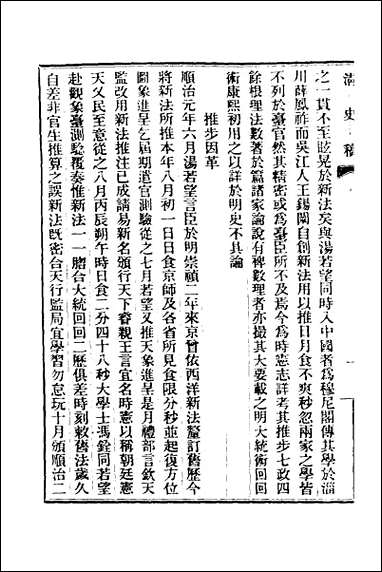 清史稿
之一貫不至眩晃於新法矣與湯若望同時入中國者爲穆尼閣傳其學於淄
川薛鳳祚而吳江人王錫闡自創新法用以推日月食不爽秒忽兩家之學皆
不列於臺官然其精密或爲臺臣所不及焉今爲時憲志詳考其推步七政四
餘根理法數著於篇諸家論說有裨數理者亦撮其大要載之明大統術回回
術康熙初用之以詳於明史不具論
推步因革
順治元年六月湯若望言臣於明崇禎二年來京曾依西洋新法釐訂舊歷今
將新法所推本年八月初一日日食京師及各省所見食限分秒並起復方位
圖象進呈乞屆期遣官測驗從之七月若望又推天象進呈是月禮部言欽天
監改用新法推注已成請易新名頒行天下睿親王言宜名時憲以稱朝廷憲
天乂民至意從之八月丙辰朔午時日食二分四十八秒大學士馮銓同若望
赴觀象臺測驗覆奏惟新法一一脗合大統回回二歷俱差時刻敕舊法歲久
自差非官生推算之誤新法既密合天行監局宜學習勿怠玩十月頒順治二